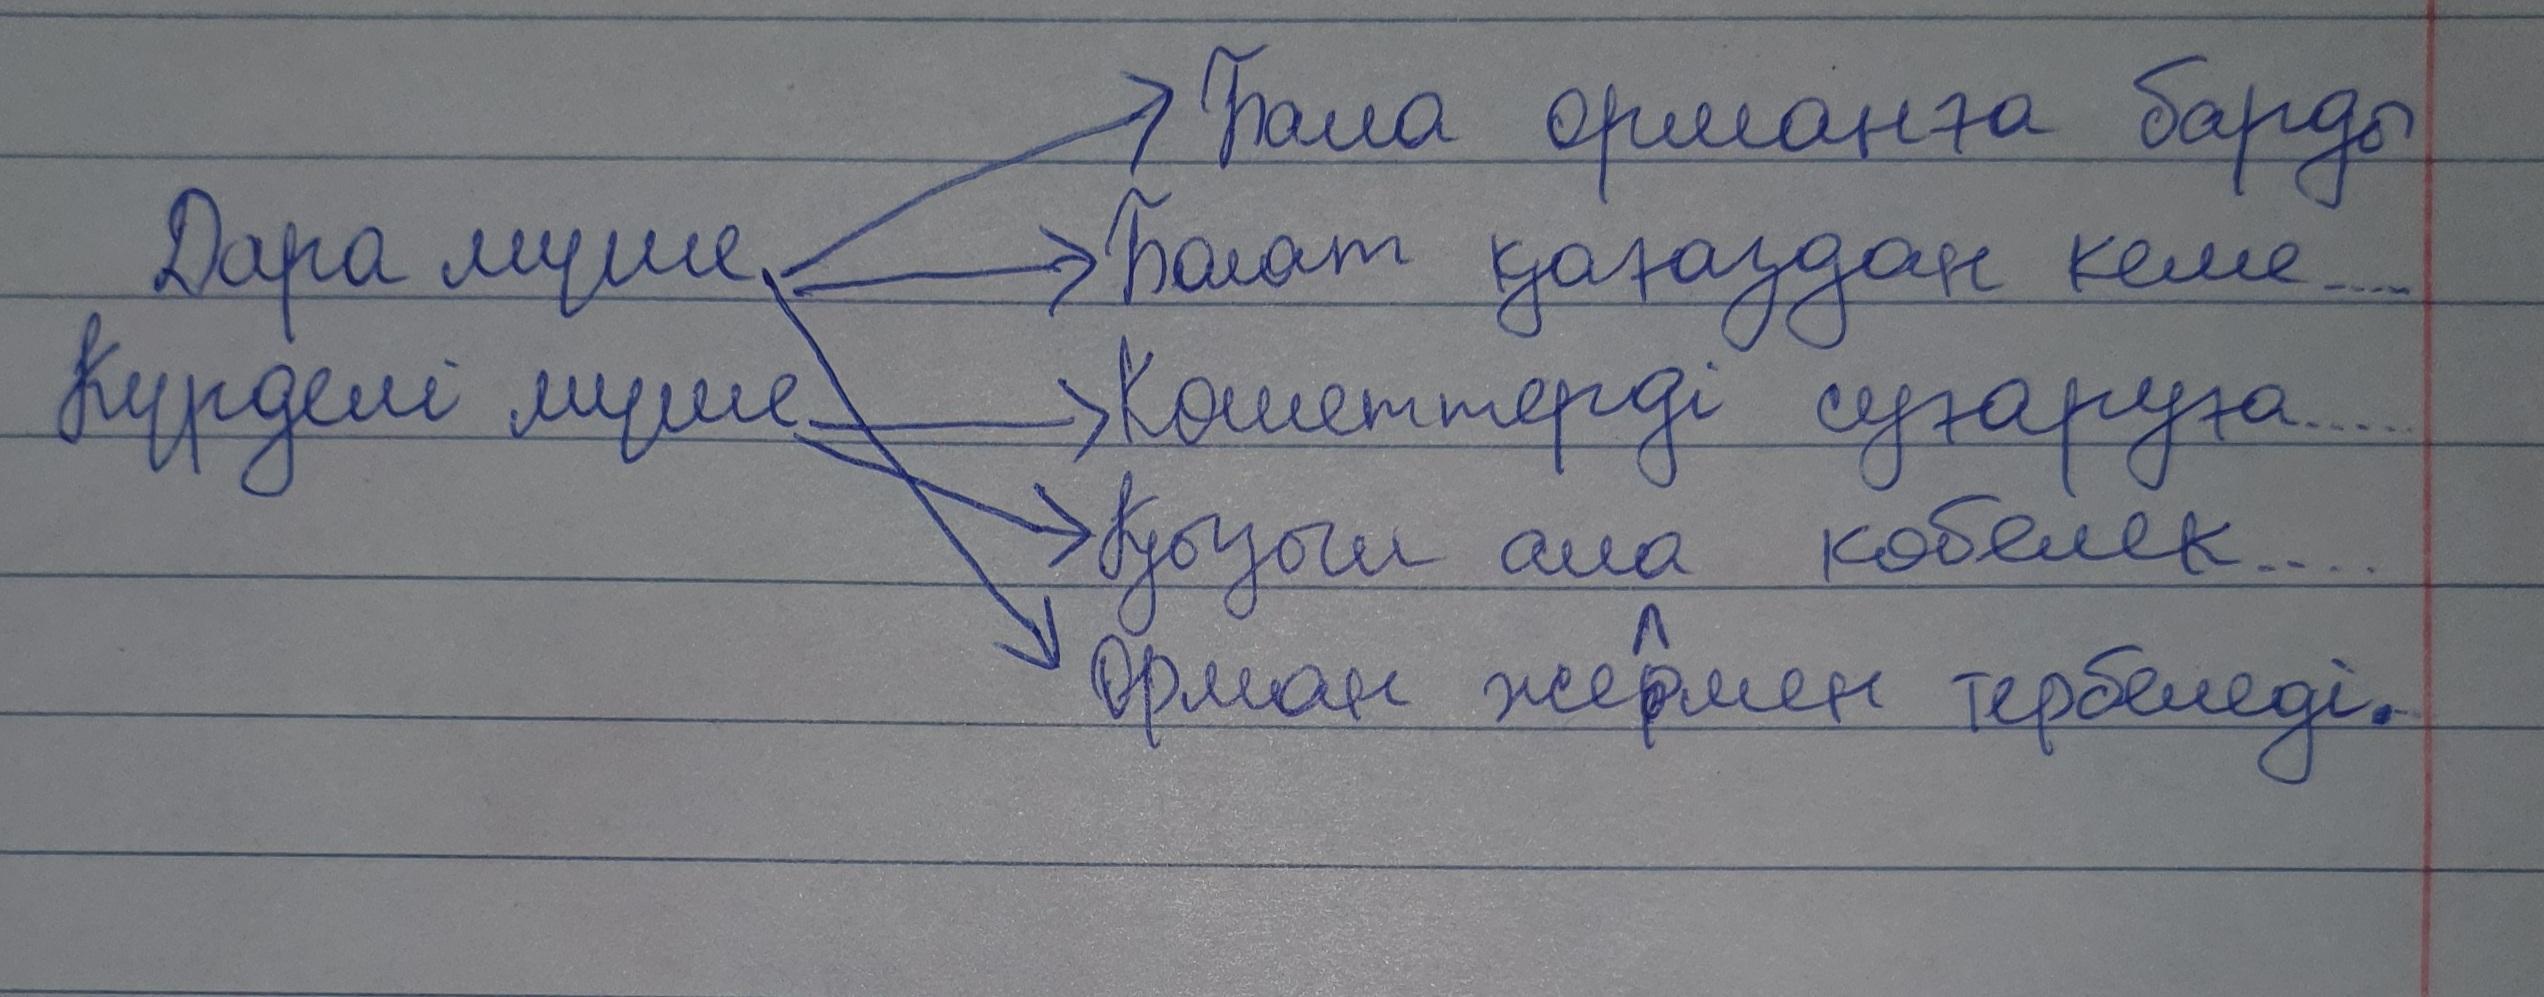 Дара мүше
Күрделі мүше
Бала орманға барды
Болат қағаздан кеме....
Көшеттерді суғаруға.....
Қызыл ала көбелек....
Орман желмен тербеледі.